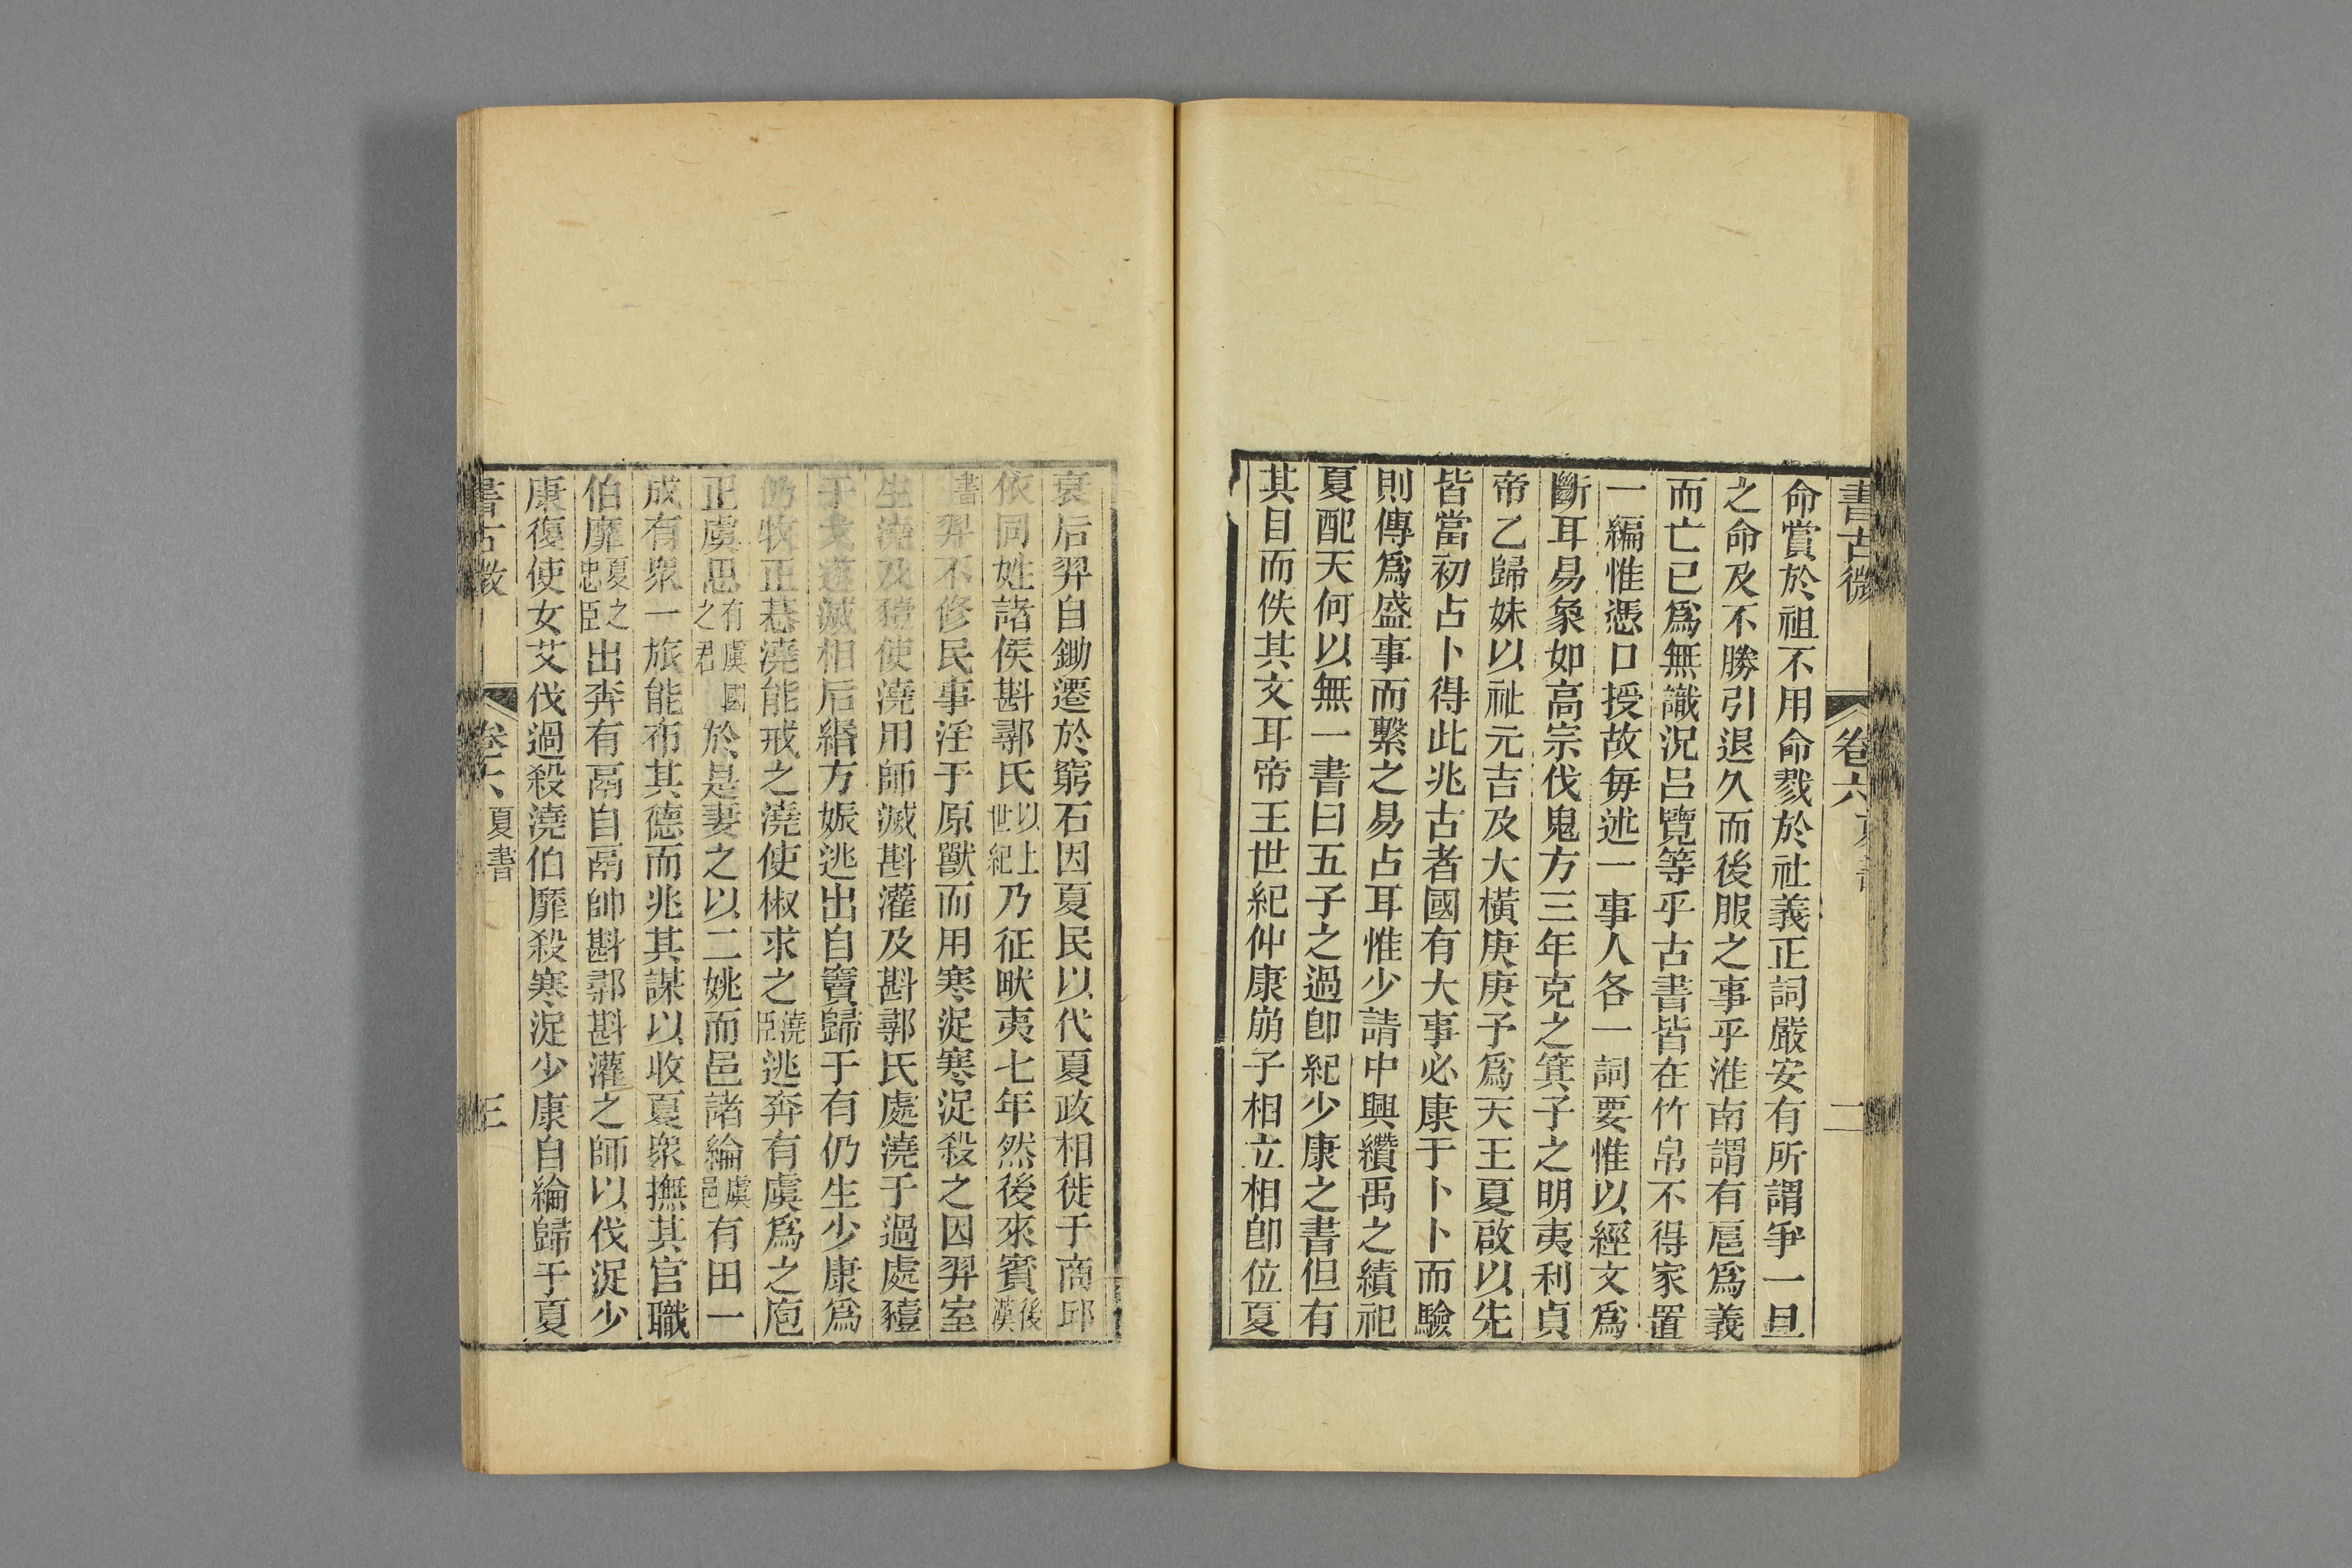 書古微 卷六 夏書 二
命賞於祖不用命戮於社義正詞嚴安有所謂爭一旦
之命及不勝引退久而後服之事乎淮南謂有扈爲義
而亡已爲無識況呂覽等乎古書皆在竹帛不得家置
一編惟憑口授故每述一事人各一詞要惟以經文爲
斷耳易象如高宗伐鬼方三年克之箕子之明夷利貞
帝乙歸妹以祉元吉及大橫庚庚予爲天王夏啟以先
皆當初占卜得此兆古者國有大事必康于卜卜而驗
則傳爲盛事而繫之易占耳惟少請中興纘禹之績祀
夏配天何以無一書曰五子之過卽紀少康之書但有
其目而佚其文耳帝王世紀仲康崩子相立相卽位夏
衰后羿自鋤遷於窮石因夏民以代夏政相徙于商邱
依同姓諸侯斟鄩氏以上世紀乃征畎夷七年然後來賓後漢
書羿不修民事淫于原獸而用寒浞寒浞殺之因羿室
生澆及豷使澆用師滅斟灌及斟鄩氏處澆于過處豷
于戈遂滅相后緡方娠逃出自竇歸于有仍生少康爲
仍牧正惎澆能戒之澆使椒求之澆臣逃奔有虞爲之庖
正虞思有虞國之君於是妻之以二姚而邑諸綸虞邑有田一
成有衆一旅能布其德而兆其謀以收夏衆撫其官職
伯靡夏之忠臣出奔有鬲自鬲帥斟鄩斟灌之師以伐浞少
康復使女艾伐過殺澆伯靡殺寒浞少康自綸歸于夏
書古微 卷六 夏書 三